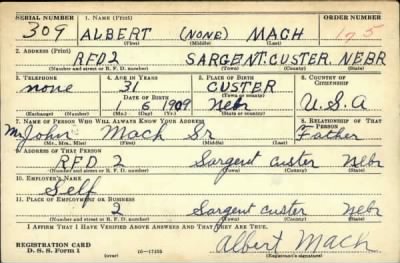 SERIAL NUMBER 1. NAME (Print) ORDER NUMBER
309 ALBERT (NONE) MACH 175
(First) (Middle) (Last)
2. ADDRESS (Print)
RFD2 SARGENT. CUSTER, NEBR
(Number and street or R. F. D. number) (Town) (County) (State)
3. TELEPHONE 4. AGE IN YEARS 5. PLACE OF BIRTH 6. COUNTRY OF CITIZENSHIP
none 31 CUSTER
DATE OF BIRTH (Town or county)
1 6 1909 Nebr U.S.A
(Exchange) (Number) (Mo.) (Day) (Yr.) (State or country)
7. NAME OF PERSON WHO WILL ALWAYS KNOW YOUR ADDRESS 8. RELATIONSHIP OF THAT PERSON
Mr John Mach Sr Father
(Mr., Mrs., Miss) (First) (Middle) (Last)
9. ADDRESS OF THAT PERSON
RFD 2 Sargent Custer Nebr
(Number and street or R. F. D. number) (Town) (County) (State)
10. EMPLOYER'S NAME
Self
11. PLACE OF EMPLOYMENT OR BUSINESS
2 Sargent Custer Nebr
(Number and street or R. F. D. number) (Town) (County) (State)
I AFFIRM THAT I HAVE VERIFIED ABOVE ANSWERS AND THAT THEY ARE TRUE.
Albert Mach
REGISTRATION CARD
D. S. S. Form 1 (over) (Registrant's signature)